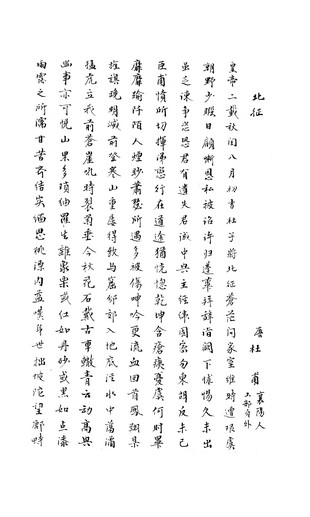 北征
唐杜甫 襄陽人
工部員外
皇帝二載秋閏八月初吉杜子將北征蒼茫問家室維時遭艱虞
朝野少暇日顧慚恩私被詔許歸蓬蓽拜辭詣闕下怵惕久未出
雖乏諫爭姿恐君有遺失君誠中興主經緯固密勿東胡反未已
臣甫憤所切揮涕戀行在道途猶恍惚乾坤含瘡痍憂虞何時畢
靡靡踰阡陌人煙眇蕭瑟所遇多被傷呻吟更流血回首鳳翔縣
旌旗晚明滅前登寒山重屢得飲馬窟邠郊入地底涇水中蕩潏
猛虎立我前蒼崖吼時裂菊垂今秋花石戴古車轍青雲動高興
幽事亦可悅山果多瑣細羅生雜橡栗或紅如丹砂或黑如點漆
雨露之所濡甘苦齊結實緬思桃源內益嘆身世拙坡陀望鄜畤